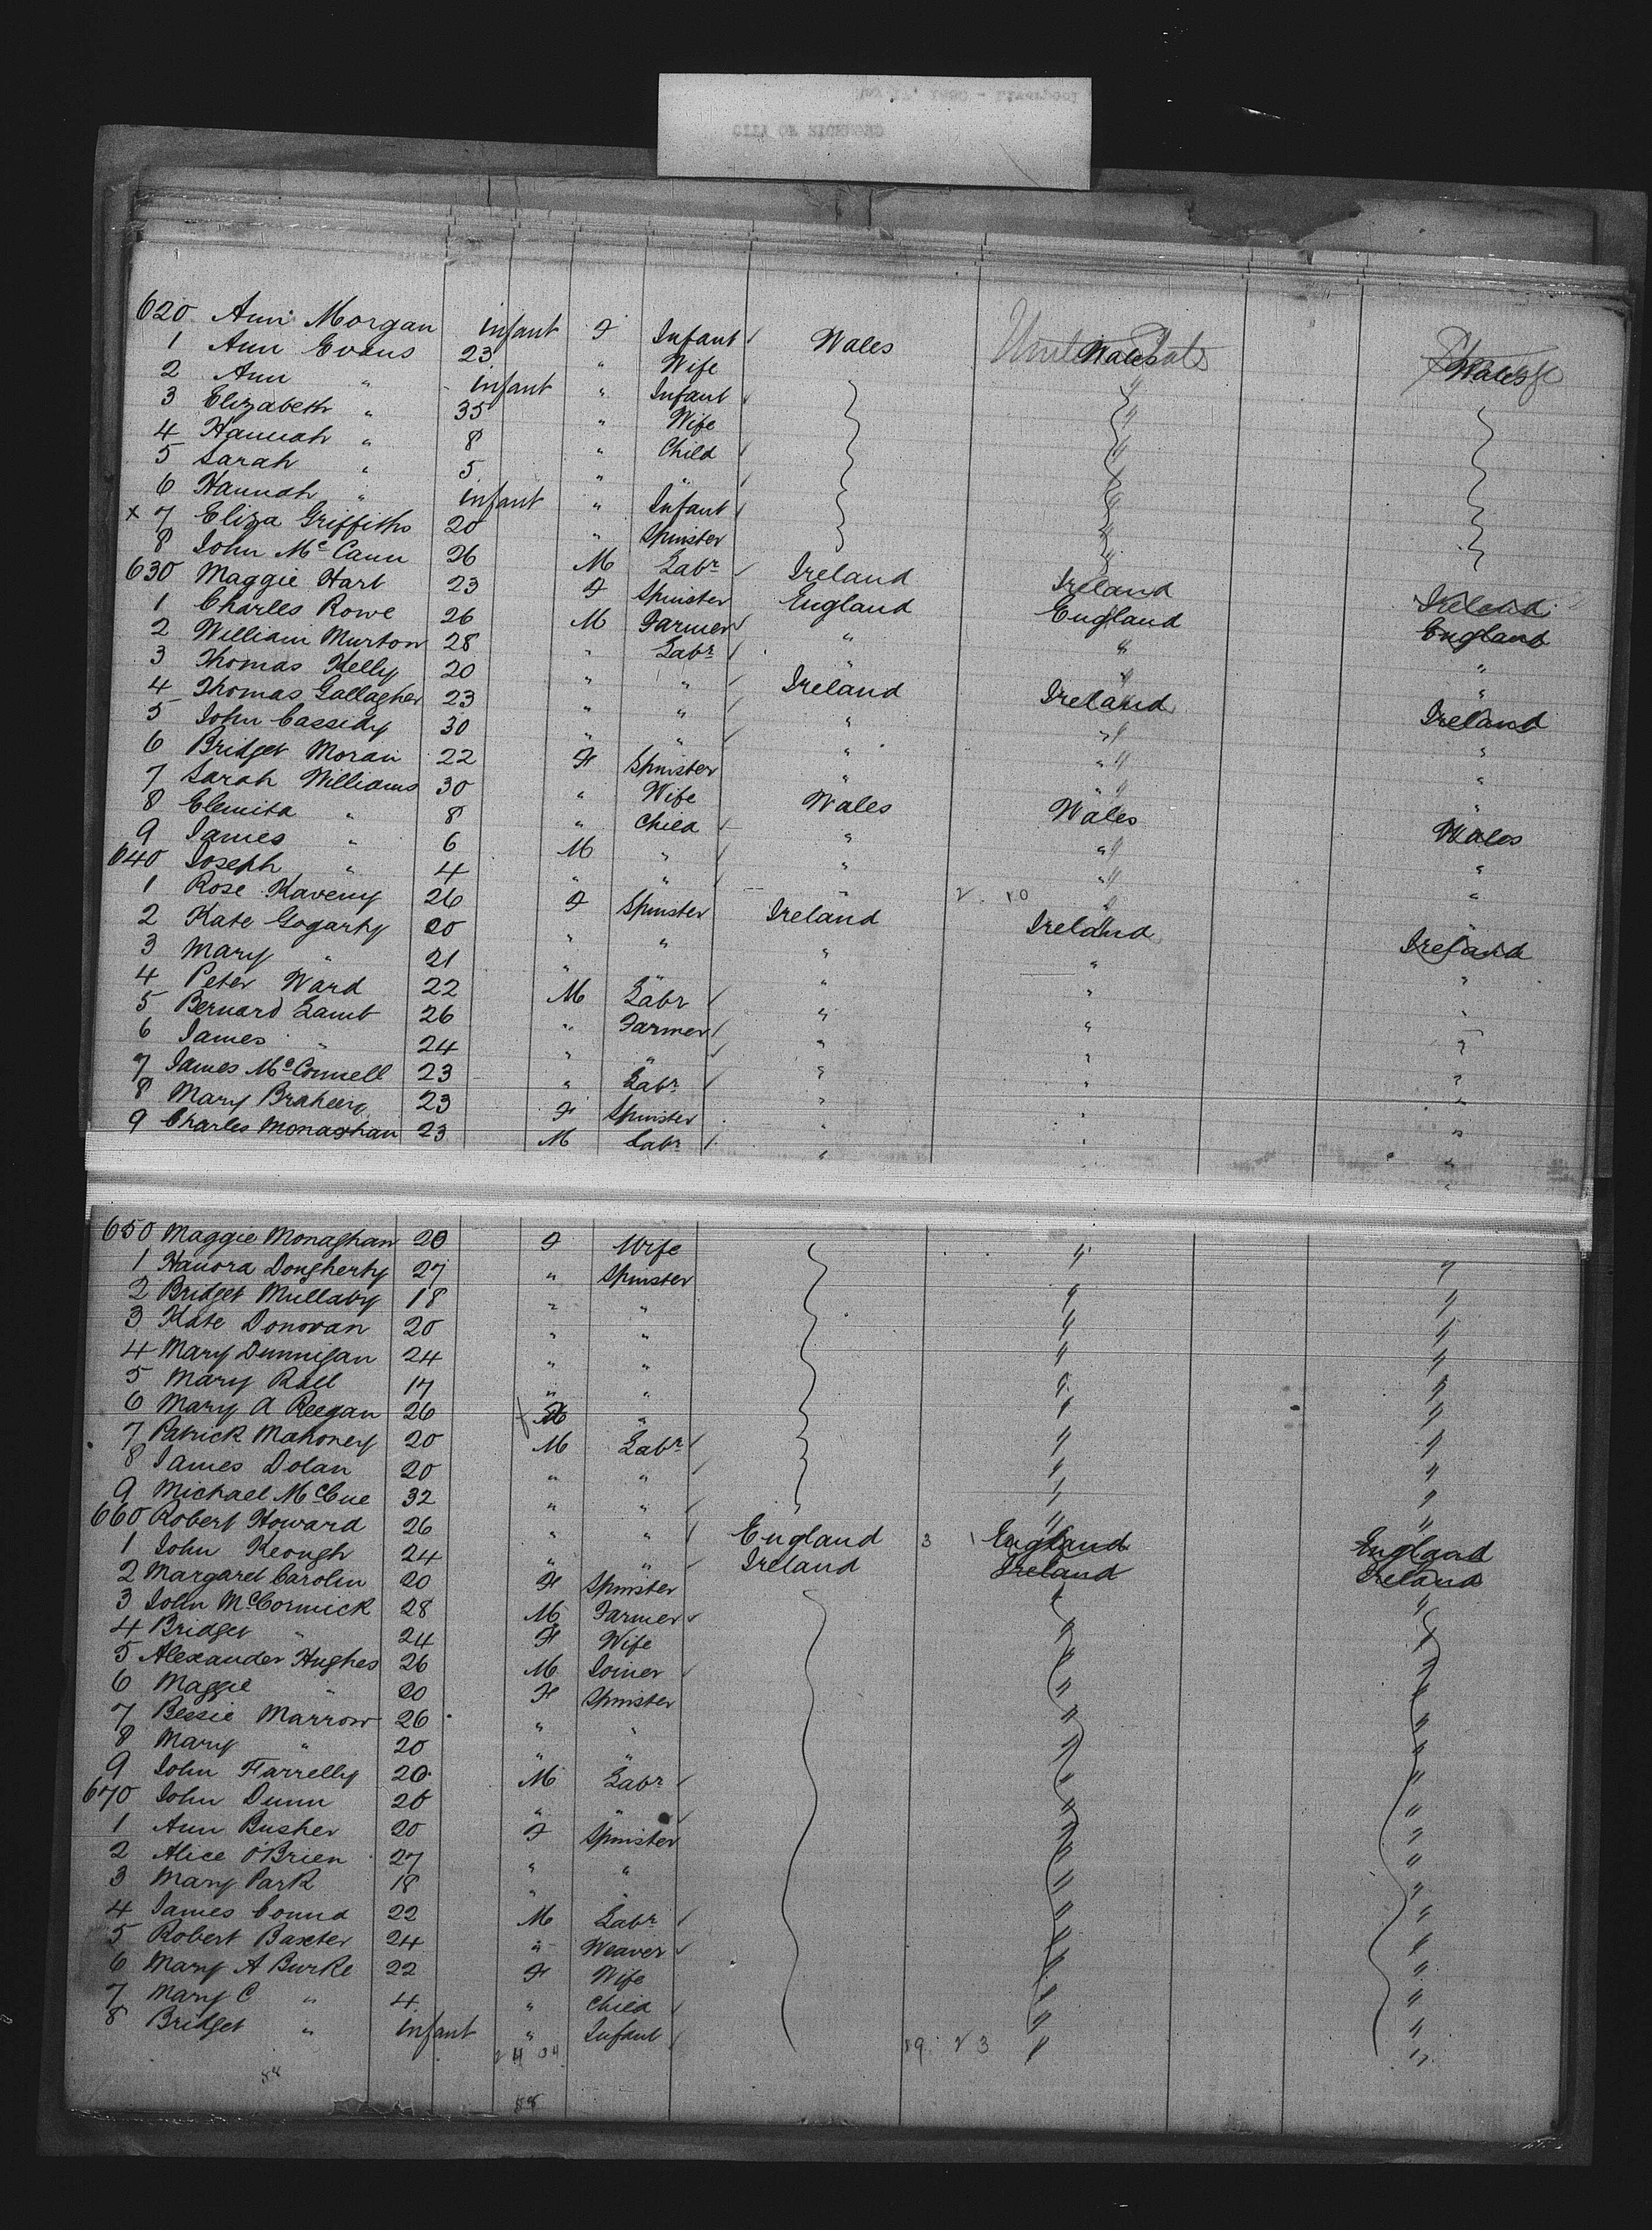 CITY OF RICHMOND
620 Ann Morgan infant F Infant Wales Wales Wales
1 Ann Evans 23 " Wife "
2 Ann " infant " Infant "
3 Elizabeth " 35 " Wife "
4 Hannah " 8 " Child "
5 Sarah " 5 " " "
6 Hannah " infant " Infant "
x 7 Eliza Griffiths 20 " Spinster "
8 John McCann 26 M Labr Ireland Ireland Ireland
630 Maggie Hart 23 F Spinster England England England
1 Charles Rowe 26 M Farmer " " "
2 William Murton 28 " Labr " " "
3 Thomas Kelly 20 " " Ireland Ireland Ireland
4 Thomas Gallagher 23 " " " " "
5 John Cassidy 30 " " " " "
6 Bridget Moran 22 F Spinster " " "
7 Sarah Williams 30 " Wife Wales Wales Wales
8 " 8 " Child " " "
9 James " 6 M " " " "
640 Joseph " 4 " " " " "
1 Rose Kaveny 26 F Spinster Ireland Ireland Ireland
2 Kate Gogarty 20 " " " " "
3 Mary " 21 " " " " "
4 Peter Ward 22 M Labr " " "
5 Bernard Lamb 26 " Farmer " " "
6 James " 24 " " " " "
7 James McConnell 23 " Labr " " "
8 Mary 23 F Spinster " " "
9 Charles Monaghan 23 M Labr " " "
650 Maggie Monaghan 20 F Wife " "
1 Hanora Dougherty 27 " Spinster " "
2 Bridget Mullaby 18 " " " "
3 Kate Donovan 20 " " " "
4 Mary Dunnigan 24 " " " "
5 Mary Rall 17 " " " "
6 Mary A Reegan 26 F " " "
7 Patrick Mahoney 20 M Labr " "
8 James Dolan 20 " " " "
9 Michael McCue 32 " " " "
660 Robert Howard 26 " " England 3 England England
1 John Keough 24 " " Ireland Ireland Ireland
2 Margaret Carolin 20 F Spinster " "
3 John McCormick 28 M Farmer " "
4 Bridget " 24 F Wife " "
5 Alexander Hughes 26 M Joiner " "
6 Maggie " 20 F Spinster " "
7 Bessie Marrow 26 " " " "
8 Mary " 20 " " " "
9 John Farrelly 20 M Labr " "
670 John Dunn 20 " " " "
1 Ann Busher 20 F Spinster " "
2 Alice O'Brien 27 " " " "
3 Mary Park 18 " " " "
4 James 22 M Labr " "
5 Robert Baxter 24 " Weaver " "
6 Mary A Burke 22 F Wife " "
7 Mary C " 4 " Child " "
8 Bridget " infant " Infant " "